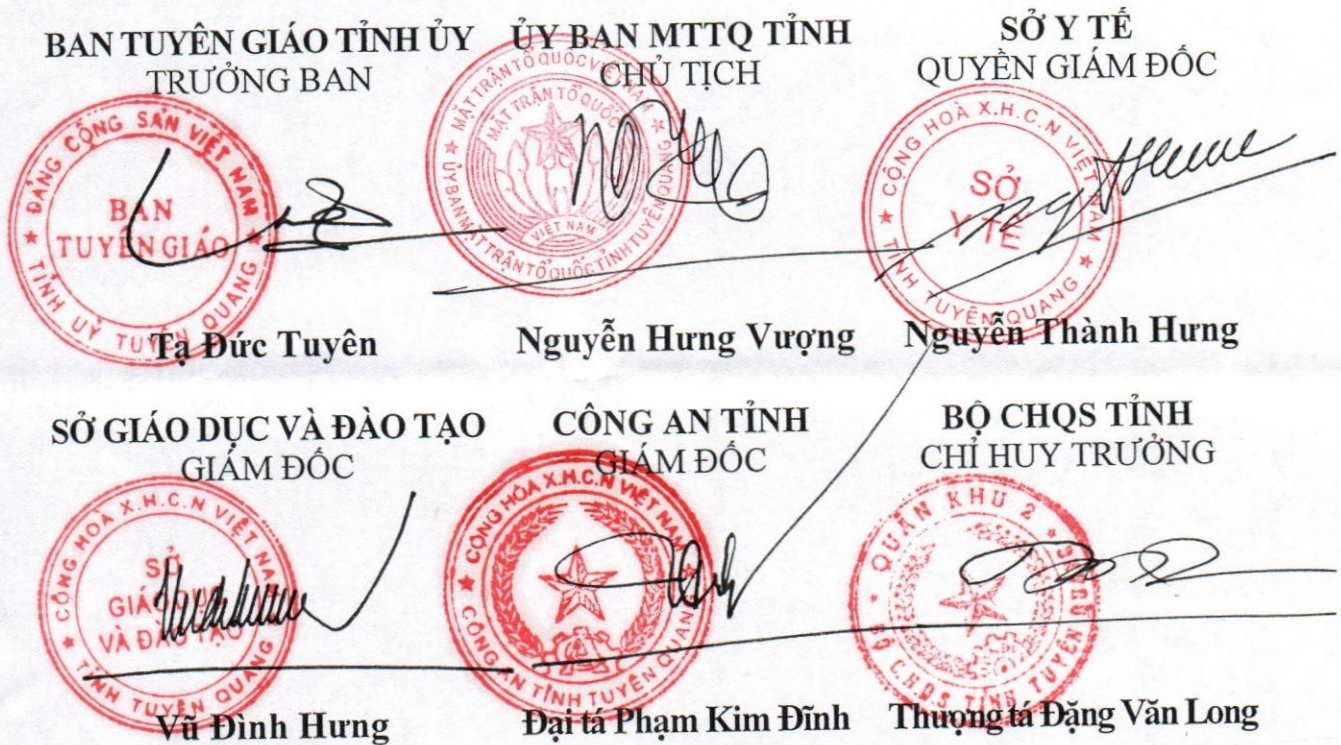 BAN TUYÊN GIÁO TỈNH ỦY
TRƯỞNG BAN
ĐẢNG CỘNG SẢN VIỆT NAM
BAN
TUYÊN GIÁO
TỈNH UỶ TUYÊN QUANG
Tạ Đức Tuyên
ỦY BAN MTTQ TỈNH
CHỦ TỊCH
MẶT TRẬN TỔ QUỐC VIỆT NAM
MẶT TRẬN TỔ QUỐC
VIỆT NAM
ỦY BAN MẶT TRẬN TỔ QUỐC TỈNH TUYÊN QUANG
Nguyễn Hưng Vượng
SỞ Y TẾ
QUYỀN GIÁM ĐỐC
CỘNG HOÀ X.H.C.N VIỆT NAM
SỞ
Y TẾ
TỈNH TUYÊN QUANG
Nguyễn Thành Hưng
SỞ GIÁO DỤC VÀ ĐÀO TẠO
GIÁM ĐỐC
CỘNG HOÀ X.H.C.N VIỆT NAM
SỞ
GIÁO DỤC
VÀ ĐÀO TẠO
TỈNH TUYÊN QUANG
Vũ Đình Hưng
CÔNG AN TỈNH
GIÁM ĐỐC
CỘNG HÒA X.H.C.N VIỆT NAM
CÔNG AN TỈNH TUYÊN QUANG
Đại tá Phạm Kim Đĩnh
BỘ CHQS TỈNH
CHỈ HUY TRƯỞNG
QUÂN KHU 2
BỘ C.H.Q.S TỈNH TUYÊN QUANG
Thượng tá Đặng Văn Long